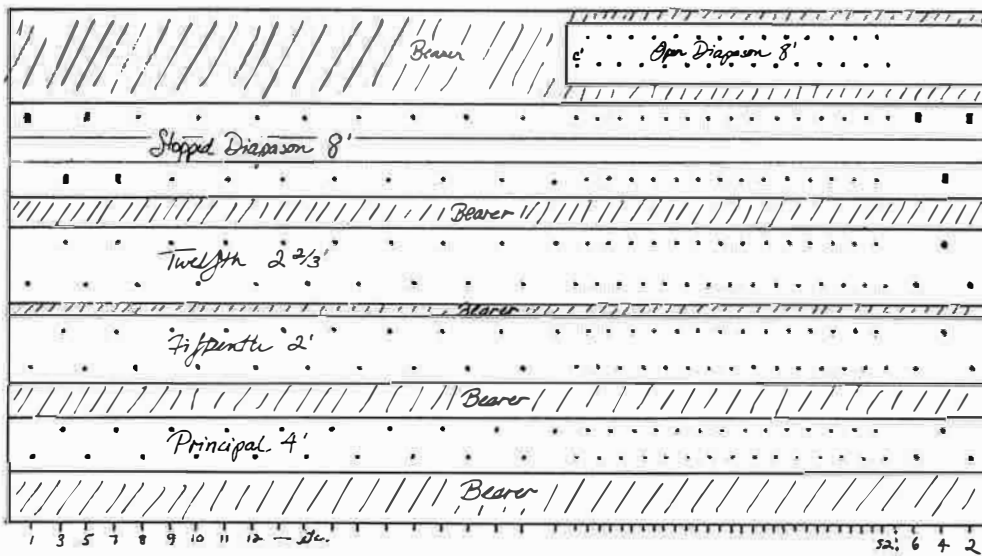 Bearer
c' Open Diapason 8'
Stopped Diapason 8'
Bearer
Twelfth 2 2/3'
Bearer
Fifteenth 2'
Bearer
Principal 4'
Bearer
1 3 5 7 8 9 10 11 12 — etc. 52; 6 4 2